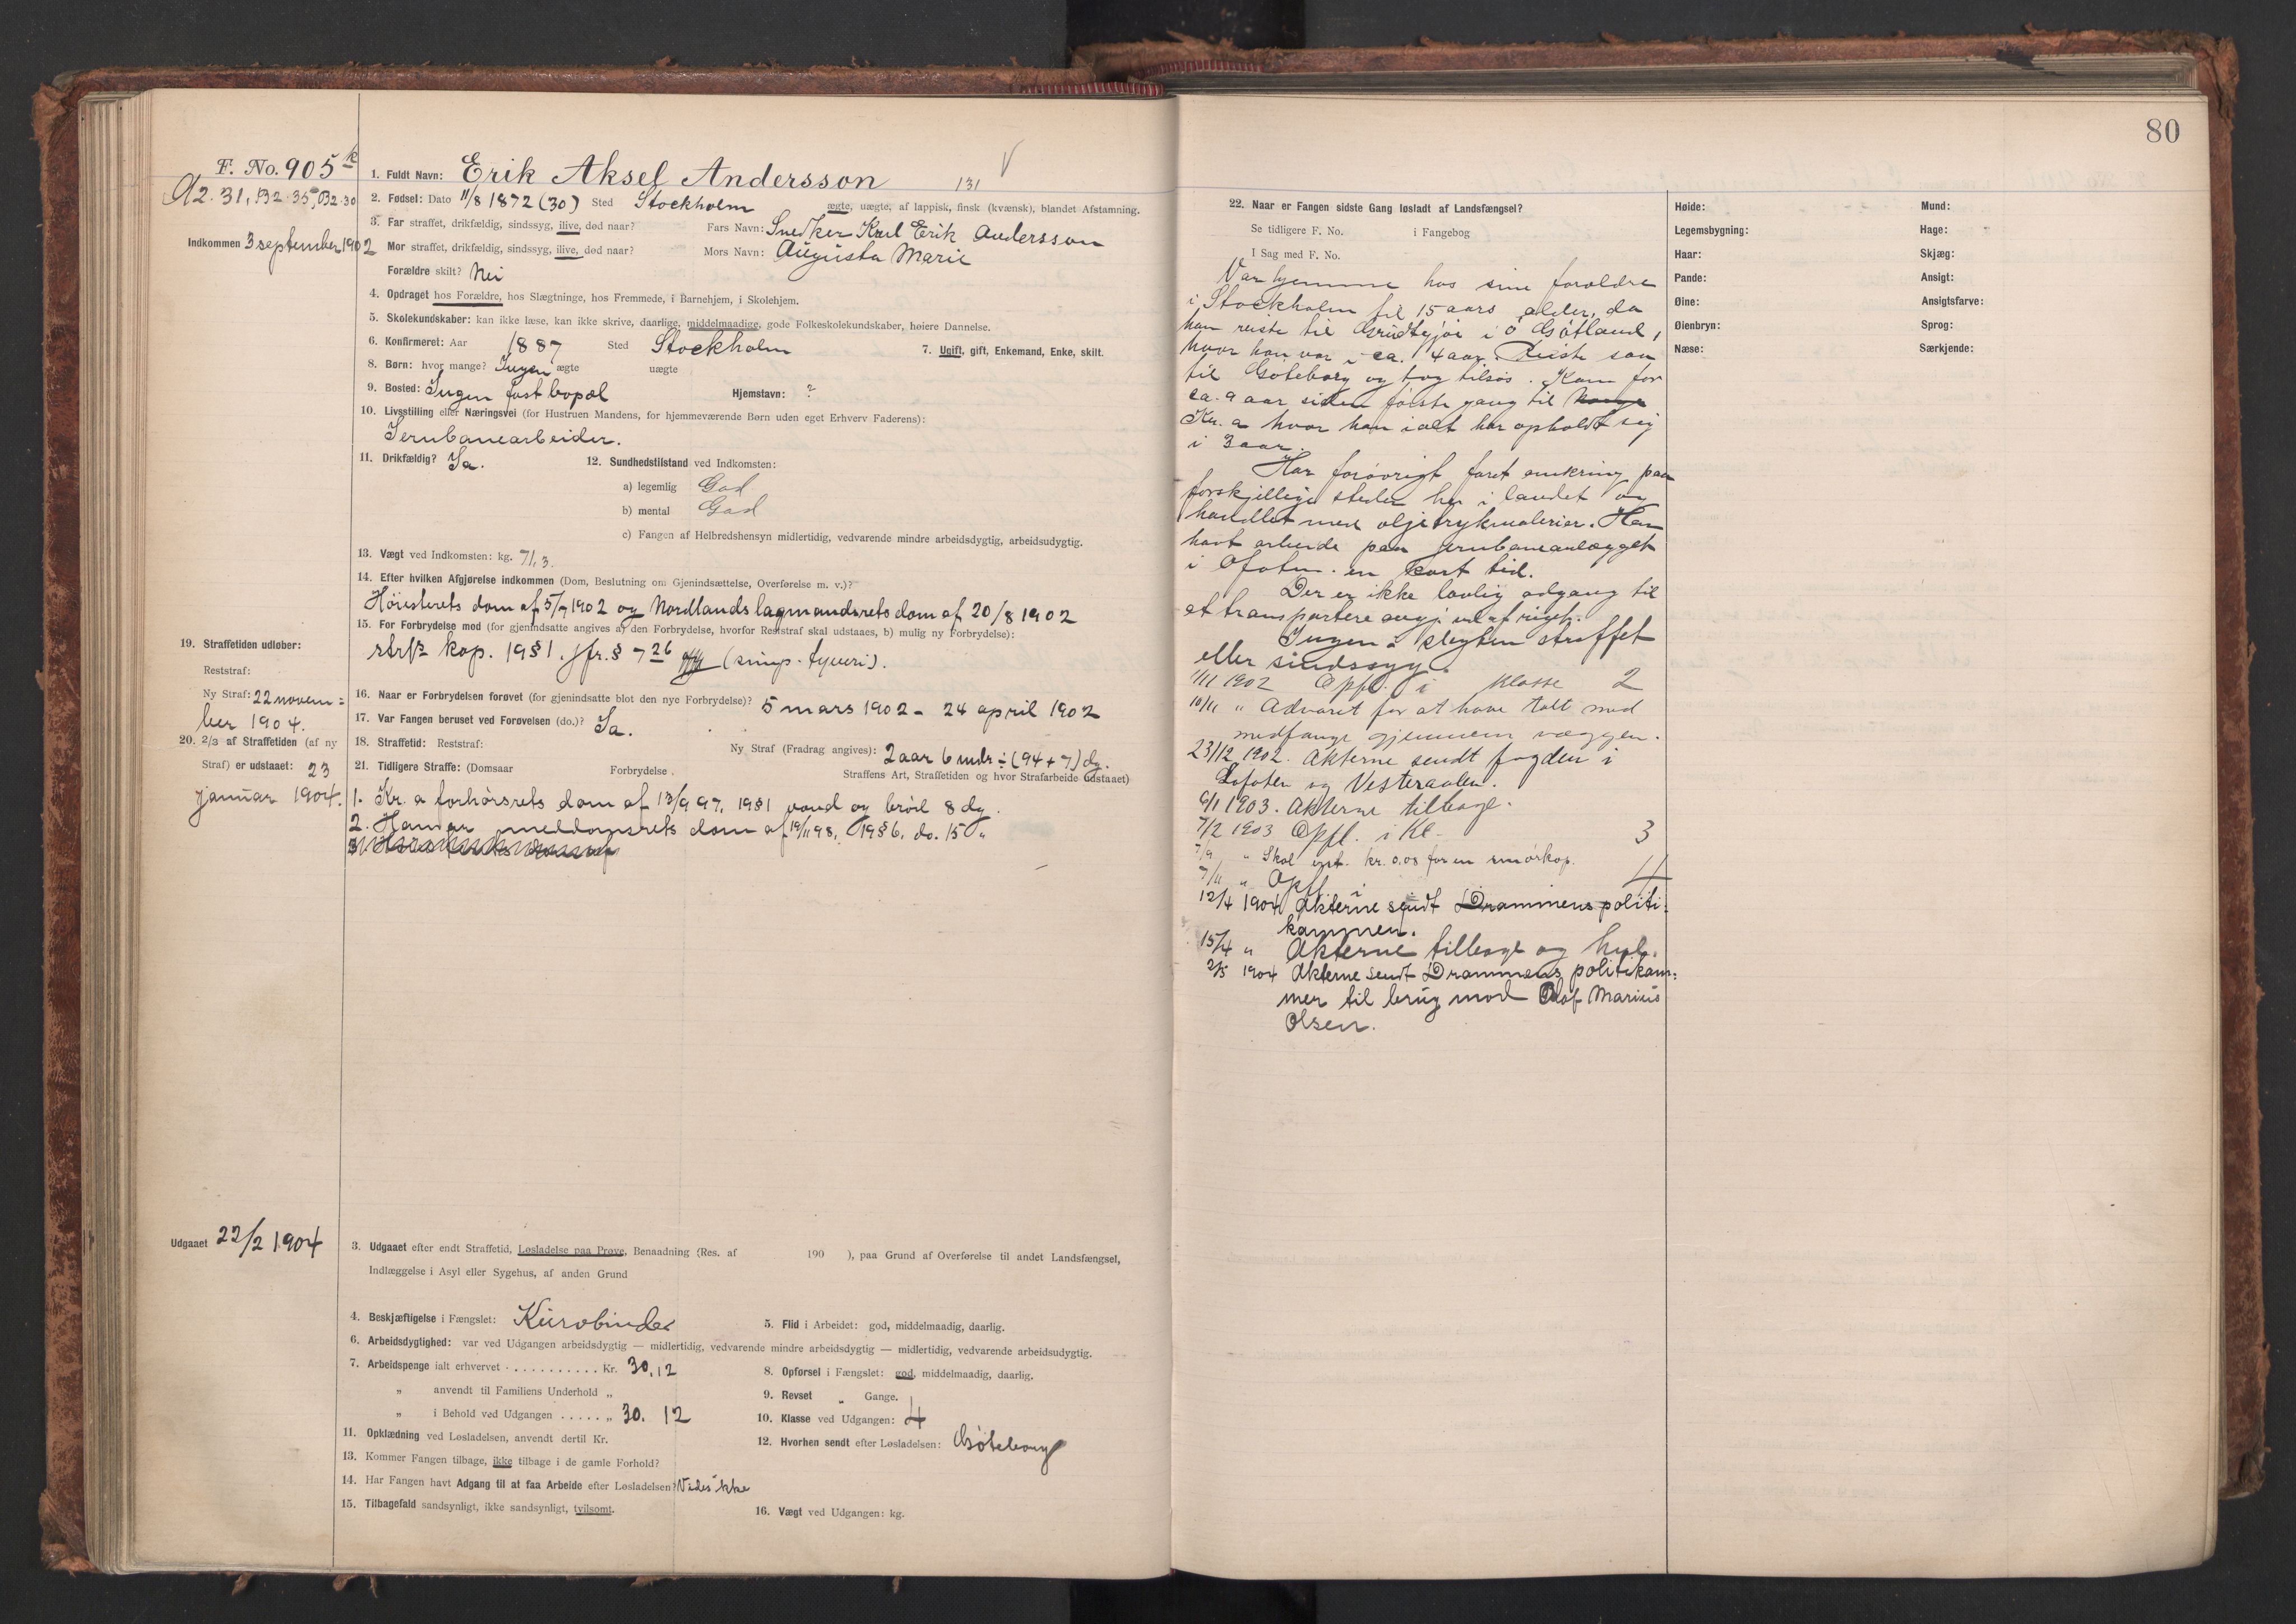 F. No. 905 k
A2. 31, B2. 35, B2. 30
Indkommen 3 september 1902
1. Fuldt Navn: Erik Aksel Andersson 131 V
2. Fødsel: Dato 11/8 1872 (30) Sted Stockholm ægte, uægte, af lappisk, finsk (kvænsk), blandet Afstamning.
3. Far straffet, drikfældig, sindssyg, ilive, død naar? Fars Navn: Snedker Karl Erik Andersson
Mor straffet, drikfældig, sindssyg, ilive, død naar? Mors Navn: Augusta Marie
Forældre skilt? Nei
4. Opdraget hos Forældre, hos Slægtninge, hos Fremmede, i Barnehjem, i Skolehjem.
5. Skolekundskaber: kan ikke læse, kan ikke skrive, daarlige, middelmaadige, gode Folkeskolekundskaber, høiere Dannelse.
6. Konfirmeret: Aar 1887 Sted Stockholm 7. Ugift, gift, Enkemand, Enke, skilt.
8. Børn: hvor mange? Ingen ægte uægte
9. Bosted: Ingen fast bopæl Hjemstavn: ?
10. Livsstilling eller Næringsvei (for Hustruen Mandens, for hjemmeværende Børn uden eget Erhverv Faderens):
Jernbanearbeider.
11. Drikfældig? Ja. 12. Sundhedstilstand ved Indkomsten:
a) legemlig God
b) mental God
c) Fangen af Helbredshensyn midlertidig, vedvarende mindre arbeidsdygtig, arbeidsudygtig.
13. Vægt ved Indkomsten: kg. 71,3.
14. Efter hvilken Afgjørelse indkommen (Dom, Beslutning om Gjenindsættelse, Overførelse m. v.)?
Høiesterets dom af 5/7 1902 og Nordlands lagmandsrets dom af 20/8 1902
15. For Forbrydelse mod (for gjenindsatte angives a) den Forbrydelse, hvorfor Reststraf skal udstaaes, b) mulig ny Forbrydelse):
kap. 19 § 1. jfr. § 7 26 (simp. tyveri).
19. Straffetiden udløber:
Reststraf:
Ny Straf: 22 novem=
ber 1904.
16. Naar er Forbrydelsen forøvet (for gjenindsatte blot den nye Forbrydelse)? 5 mars 1902 - 24 april 1902
17. Var Fangen beruset ved Forøvelsen (do.)? Ja.
20. 2/3 af Straffetiden (af ny
Straf) er udstaaet: 23
januar 1904.
18. Straffetid: Reststraf: Ny Straf (Fradrag angives): 2 aar 6 mdr ÷ (94 + 7) dg.
21. Tidligere Straffe: (Domsaar Forbrydelse. Straffens Art, Straffetiden og hvor Strafarbeide udstaaet)
1. Kr.a forhørsrets dom af 13/9 97, 19 § 1 vand og brød 8 dg.
2. Hamar meddomsrets dom af 19/11 98, 19 § 6. do. 15 "
Udgaaet 22/2 1904
3. Udgaaet efter endt Straffetid, Løsladelse paa Prøve, Benaadning (Res. af 190 ), paa Grund af Overførelse til andet Landsfængsel,
Indlæggelse i Asyl eller Sygehus, af anden Grund
4. Beskjæftigelse i Fængslet: Kurvbinder 5. Flid i Arbeidet: god, middelmaadig, daarlig.
6. Arbeidsdyglighed: var ved Udgangen arbeidsdygtig — midlertidig, vedvarende mindre arbeidsdygtig — midlertidig, vedvarende arbeidsudygtig.
7. Arbeidspenge ialt erhvervet . . . . . . . . . . . Kr. 30.12 8. Opførsel i Fængslet: god, middelmaadig, daarlig.
„ anvendt til Familiens Underhold „ 9. Revset „ Gange.
„ i Behold ved Udgangen . . . . . „ 30. 12 10. Klasse ved Udgangen: 4
11. Opklædning ved Løsladelsen, anvendt dertil Kr. 12. Hvorhen sendt efter Løsladelsen: Göteborg
13. Kommer Fangen tilbage, ikke tilbage i de gamle Forhold?
14. Har Fangen havt Adgang til at faa Arbeide efter Løsladelsen? Vides ikke
15. Tilbagefald sandsynligt, ikke sandsynligt, tvilsomt. 16. Vægt ved Udgangen: kg.
80
22. Naar er Fangen sidste Gang løsladt af Landsfængsel?
Se tidligere F. No. i Fangebog
I Sag med F. No.
Var hjemme hos sine forældre
i Stockholm til 15 aars alder, da
han reiste til i Ö Götland,
hvor han var i ca. 4 aar. Reiste saa
til Göteborg og tog tilsøs. Kom for
ca. 9 aar siden første gang til Norge
Kr.a hvor han ialt har opholdt sig
i 3 aar.
Har forøvrigt faret omkring paa
forskjellige steder her i landet og
handlet med oljetrykmalerier. Har
havt arbeide paa jernbaneanlægget
i Ofoten en kort tid.
Der er ikke lovlig adgang til
at transportere ud af riget.
Ingen i slegten straffet
eller sindssyg.
1/11 1902 Opfl. i klasse 2
10/11 " Advaret for at have talt med
medfange gjennem væggen.
23/12 1902. Akterne sendt fogden i
Lofoten og Vesteraalen.
6/1 1903. Akterne tilbage.
7/2 1903 Opfl. i Kl. 3
7/9 " Skal erst. kr. 0,08 for en smørkop.
7/11 " Opfl. i 4
12/4 1904 Akterne sendt Drammens politi=
kammer.
15/4 " Akterne tilbage og
2/5 1904 Akterne sendt Drammens politikam=
mer til brug mod Olaf Marius
Olsen.
Høide: Mund:
Legemsbygning: Hage:
Haar: Skjæg:
Pande: Ansigt:
Øine: Ansigtsfarve:
Øienbryn: Sprog:
Næse: Særkjende: